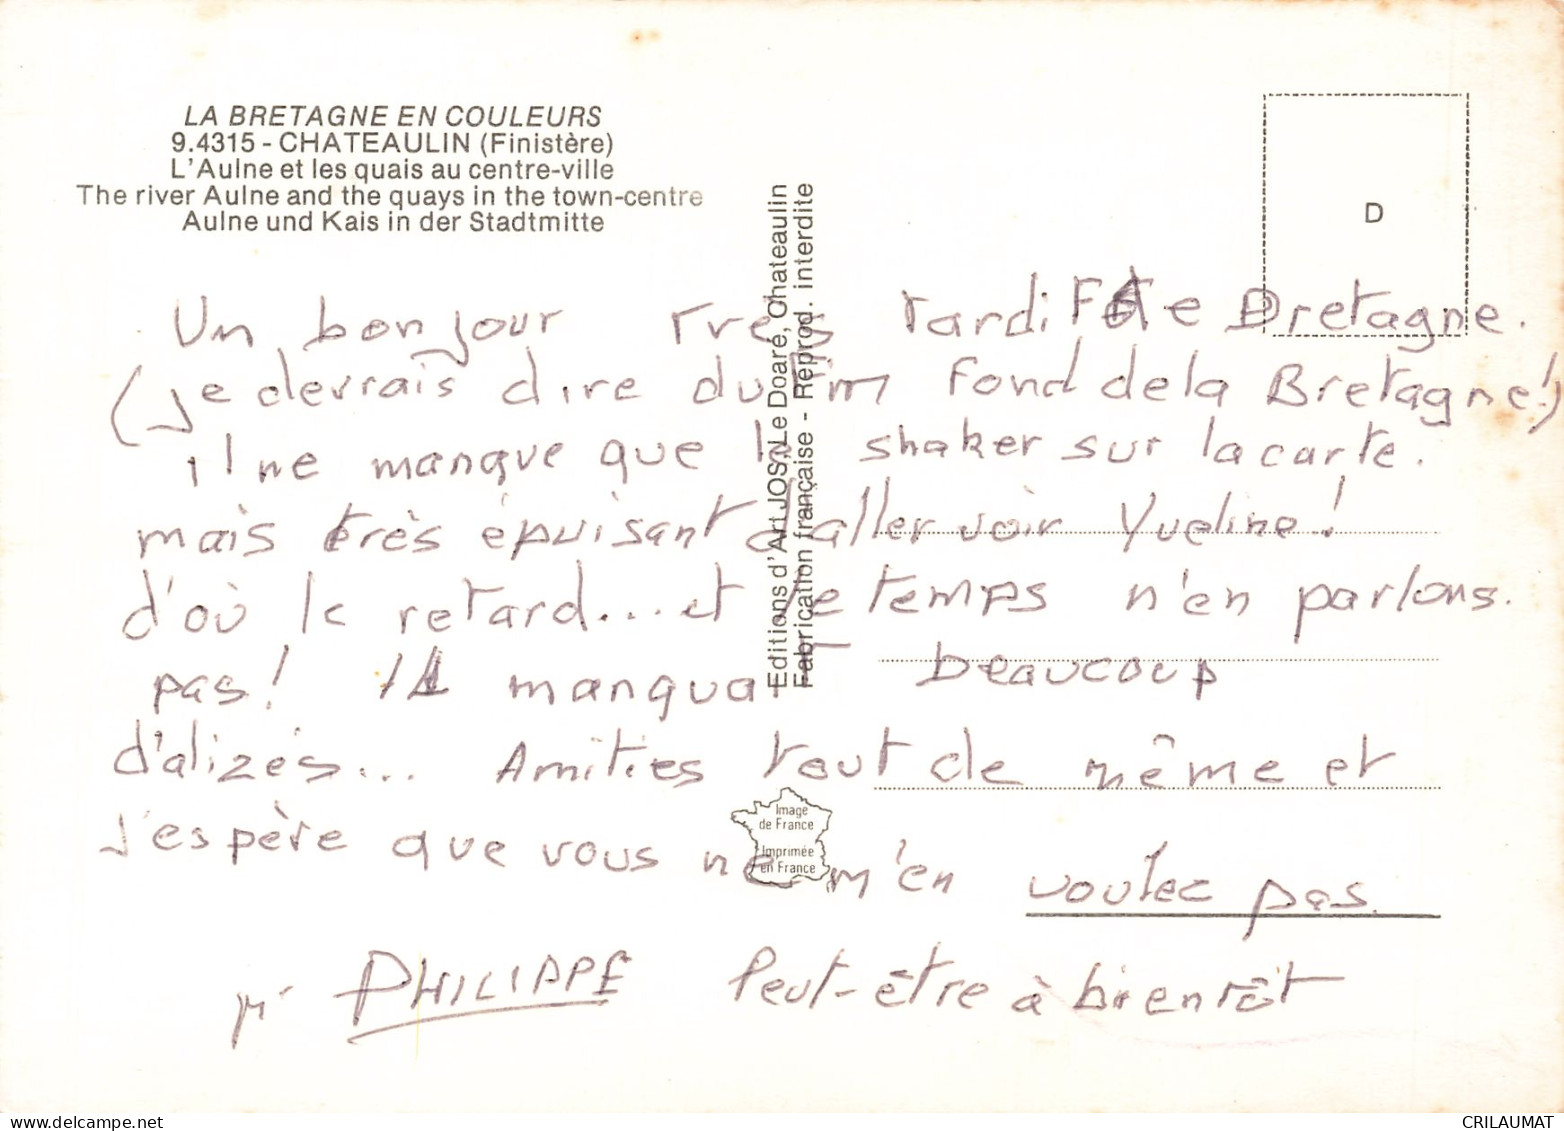 LA BRETAGNE EN COULEURS
9.4315 - CHATEAULIN (Finistère)
L'Aulne et les quais au centre-ville
The river Aulne and the quays in the town-centre
Aulne und Kais in der Stadtmitte
D
Editions d'Art JOS Le Doaré, Chateaulin
Fabrication française - Reprod. interdite
Un bonjour très tardif de Bretagne.
(Je devrais dire du fin fond de la Bretagne!)
il ne manque que le shaker sur la carte.
mais très épuisant d'aller voir Yveline!
d'où le retard... et le temps n'en parlons.
pas! Il manqua beaucoup
d'alizés... Amitiés tout de même et
J'espère que vous ne m'en voulez pas.
PHILIPPE Peut-être à bientôt
Image
de France
Imprimée
en France
CRILAUMAT